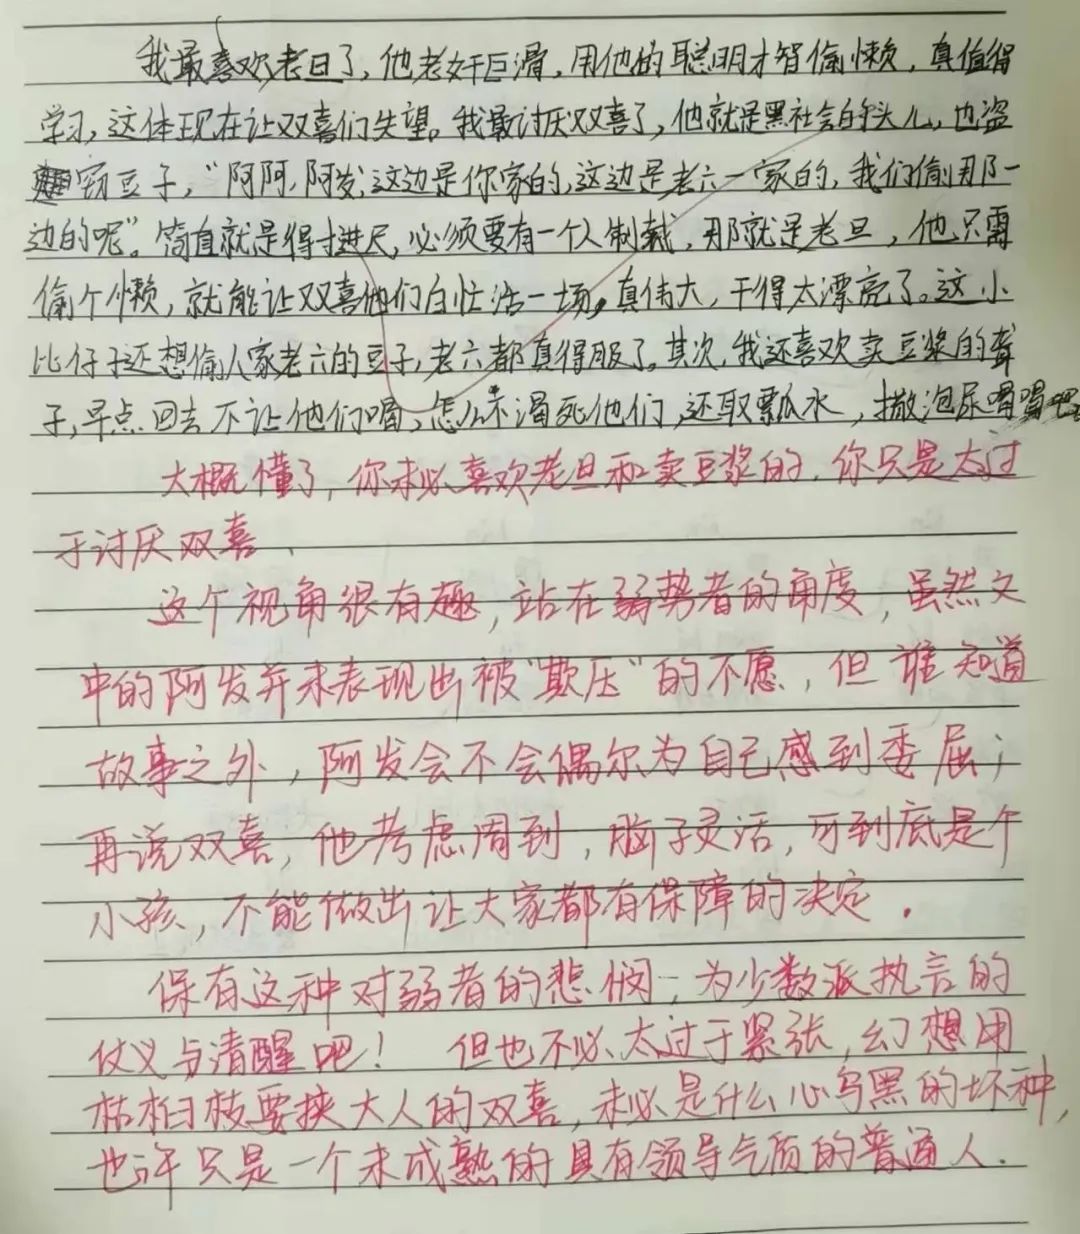 我最喜欢老旦了,他老奸巨滑,用他的聪明才智偷懒,真值得
学习,这体现在让双喜们失望。我最讨厌双喜了,他就是黑社会的头儿,也盗
窃豆子,“阿阿,阿发,这边是你家的,这边是老六一家的,我们偷那一
边的呢”。简直就是得寸进尺,必须要有一个人制裁,那就是老旦,他只需
偷个懒,就能让双喜他们白忙活一场,真伟大,干得太漂亮了。这小
比仔子还想偷人家老六的豆子,老六都真得服了。其次,我还喜欢卖豆浆的聋
子,早点回去不让他们喝,怎么不渴死他们,还取瓢水,撒泡尿喝喝吧
大概懂了,你未必喜欢老旦和卖豆浆的,你只是太过
于讨厌双喜.
这个视角很有趣,站在弱势者的角度,虽然文
中的阿发并未表现出被“欺压”的不愿,但谁知道
故事之外,阿发会不会偶尔为自己感到委屈;
再说双喜,他考虑周到,脑子灵活,可到底是个
小孩,不能做出让大家都有保障的决定.
保有这种对弱者的悲悯,为少数派执言的
仗义与清醒吧!但也不必太过于紧张,幻想用
枯桕枝要挟大人的双喜,未必是什么心乌黑的坏种,
也许只是一个未成熟的具有领导气质的普通人.